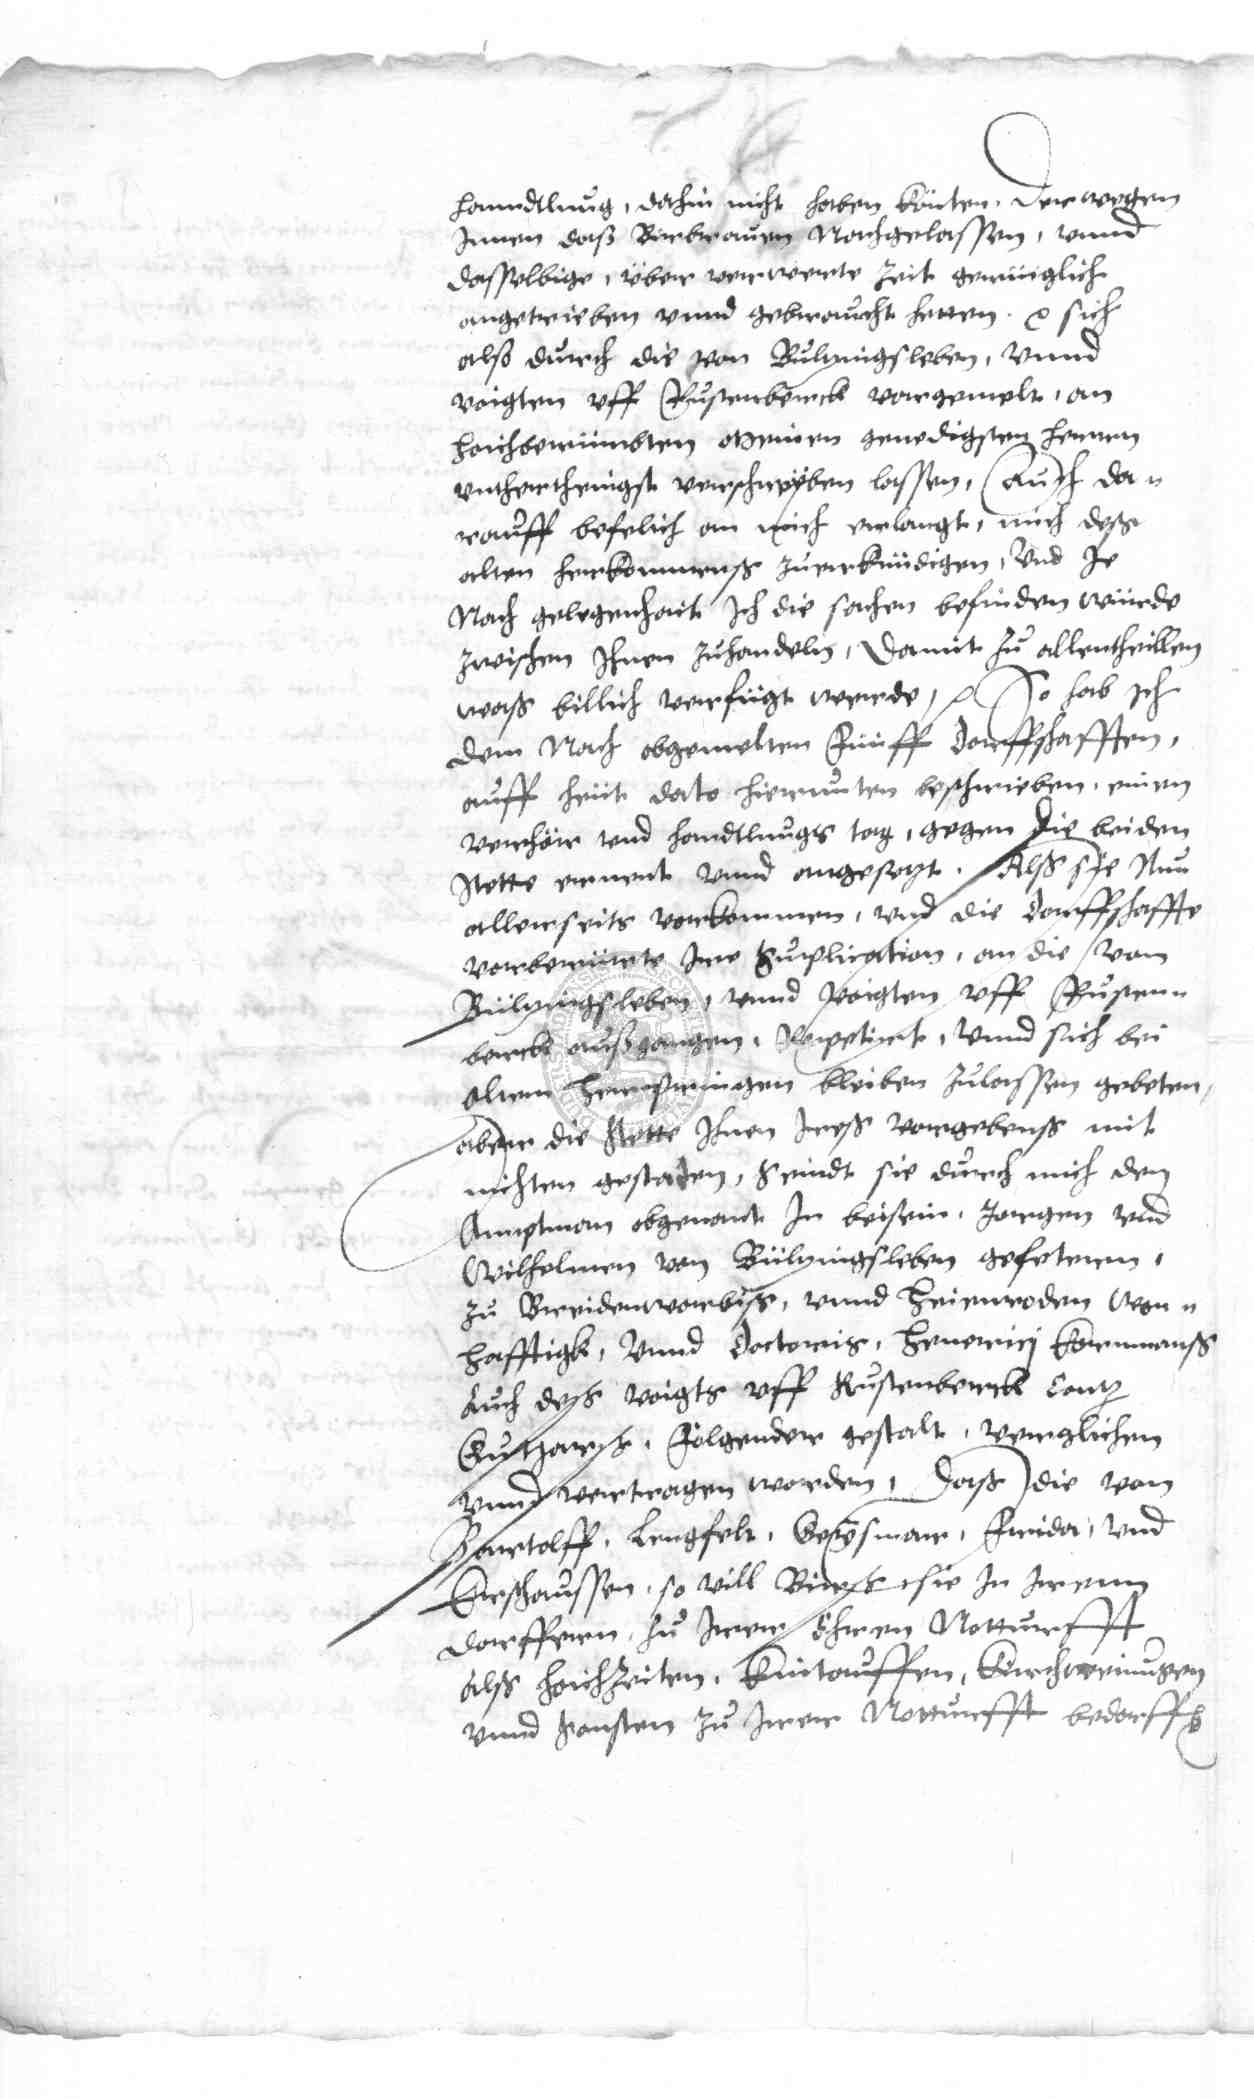 hanndtlung, dahin nicht haben könten. Derwegen
Innen daß Bierbrauen Nachgelassen, vnnd
dasselbige, über verwerte Zeit gerüiglich
angetrieben vnnd gebraucht hetten. sich
alß durch die von Bultzingsleben, vnnd
voigten vff Rustenberck vorgemelt, an
hochberümbten Meinen genedigsten herren
vntherthenigst verschreyben lassen, Auch da¬
rauff befelich an mich erlangt, mich deß
alten herkommenß Zuerkündigen, Vnd Je
Nach gelegenheit Ich die sachen befinden würde
Zwischen Ihnen Zuhandeln, Damit Zu allentheillen
waß billich verfügt werde, So hab Ich
dem Nach obgemelten Fünff Dorffschafften,
auff heüt dato hierunten beschrieben, einen
verhör vnd handtlungs tag, gegen die beiden
Stette ernent vnnd angesetzt. Alß sie Nun
allerseits vorkommen, vnd die Dorffschaffte
vorberürte Ire Suplication, an die von
Bültzingsleben, vnnd Voigten vff Rusten¬
berck außgangen, Repetirt, Vnnd sich bei
altem herpringen bleiben Zulassen gebeten,
aber die Stette Ihnen Ireß vorgebenß mit
nichten gestaden, Seindt sie durch mich den
Amptman obgenant In beisein, Jorgen vnd
Wilhelmen von Bültzingsleben gefetern,
Zu Breidenworbiß, vnnd Heienroden Won¬
hafftigk, Vnnd Doctoris, Henerici Kornmanß
Auch deß Voigts vff Rustenberck Contz
Guthartß, Folgender gestalt, verglichen
vnnd vertragen worden, Daß die von
Bartolff, Lengfelt, Geißmar, Frieda, vnd
Erßhaussen, so vill Bierß sie In iren
Dorffern, Zu Irer Ehren Notturfft
Alß hochZeiten, Kintauffen, Kirchweiungen
vnnd sonsten Zu Irer Notturfft bedorff